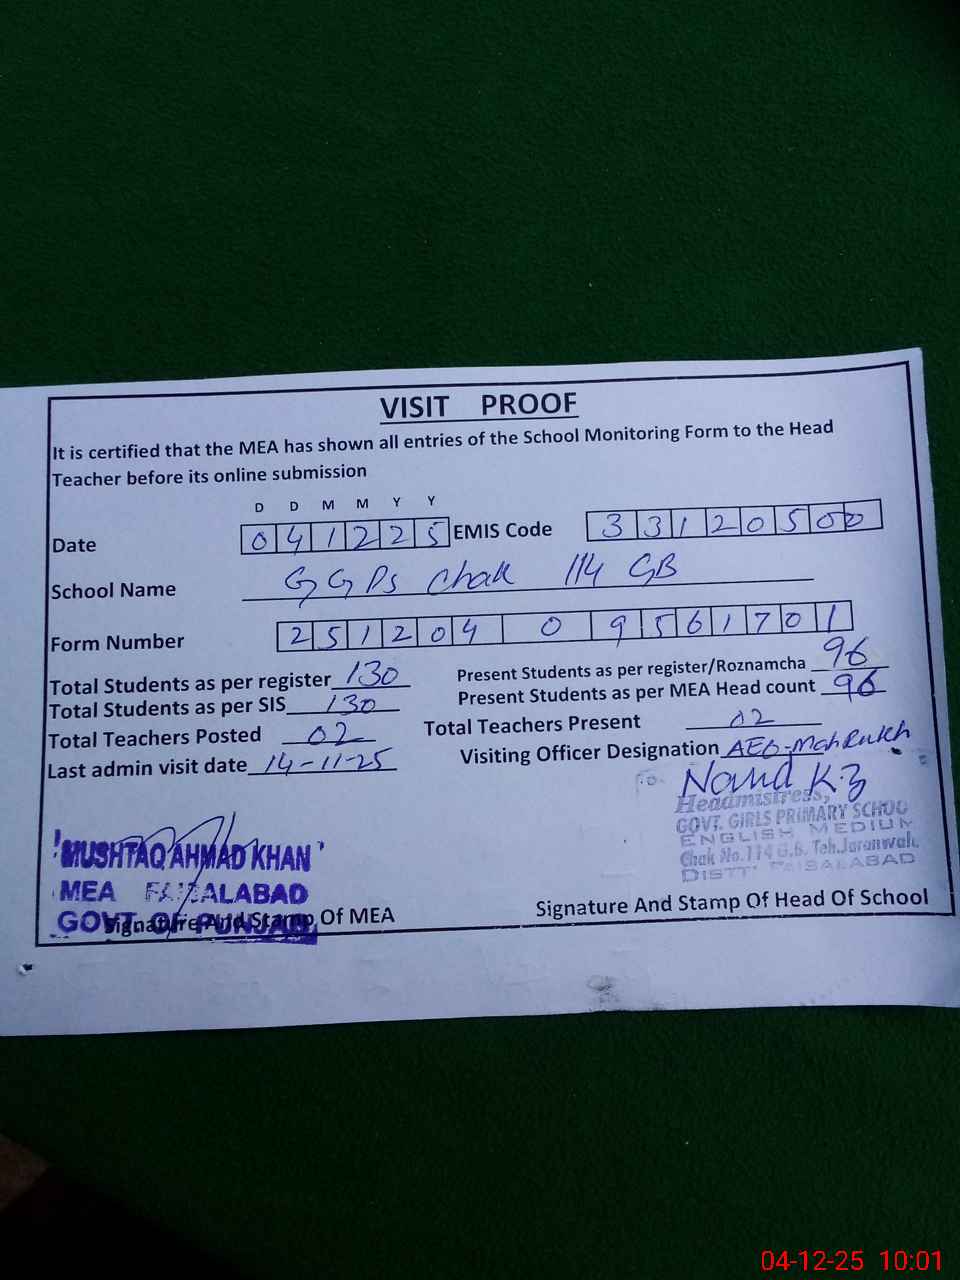 VISIT PROOF
It is certified that the MEA has shown all entries of the School Monitoring Form to the Head
Teacher before its online submission
D D M M Y Y
Date 0 4 1 2 2 5 EMIS Code 3 3 1 2 0 5 0 0
School Name GGPS Chak 114 GB
Form Number 2 5 1 2 0 4 0 9 5 6 1 7 0 1
Total Students as per register 130 Present Students as per register/Roznamcha 96
Total Students as per SIS 130 Present Students as per MEA Head count 96
Total Teachers Posted 02 Total Teachers Present 02
Last admin visit date 14-11-25 Visiting Officer Designation AEO-Mahrukh
Headmistress,
GOVT. GIRLS PRIMARY SCHOOL
ENGLISH MEDIUM
Chak No.114 G.B. Teh.Jaranwala,
DISTT. FAISALABAD
MUSHTAQ AHMAD KHAN
MEA FAISALABAD
GOVT. OF PUNJAB
Signature And Stamp Of MEA Signature And Stamp Of Head Of School
04-12-25 10:01